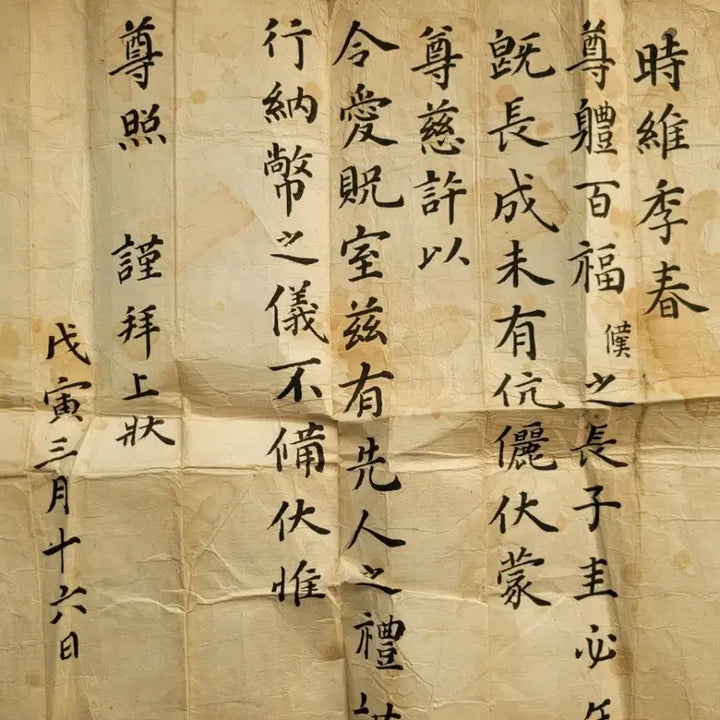 時維季春
尊軆百福 僕之長子圭必年
旣長成未有伉儷伏蒙
尊慈許以
令愛貺室玆有先人之禮
行納幣之儀不備伏惟
尊照 謹拜上狀
戊寅三月十六日